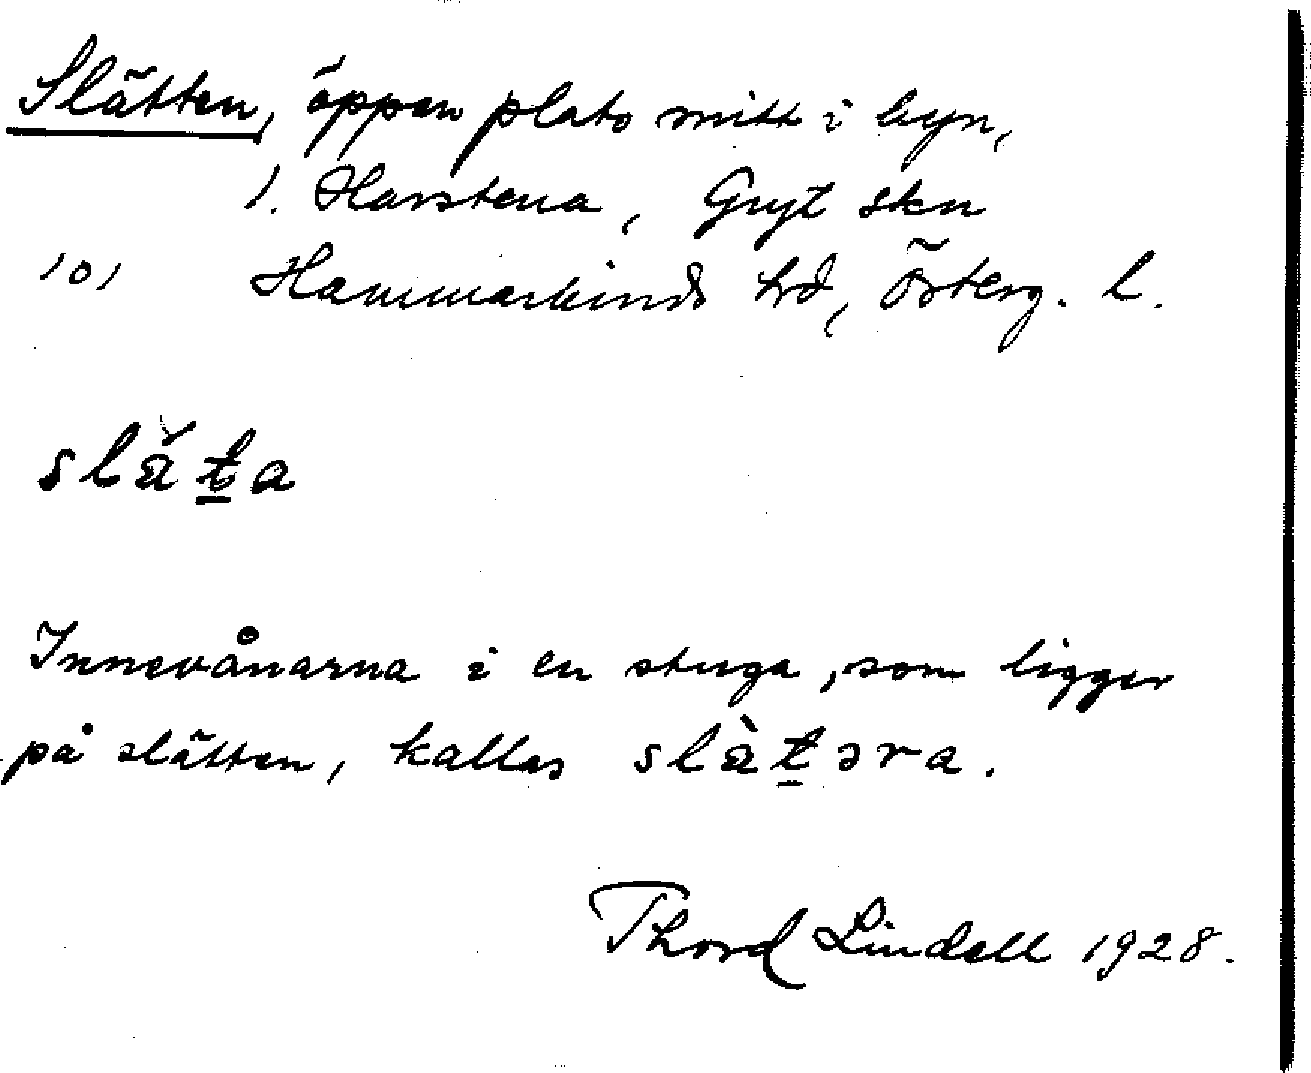 Slätten, öppen plats mitt i byn,
1. Harstena, Gryt skn
101 Hammarkinds hd, Österg. l.
slä̌t̠a
Innevånarna i en stuga, som ligger
på slätten, kallas slä̀t̠əra.
Thord Lindell 1928.